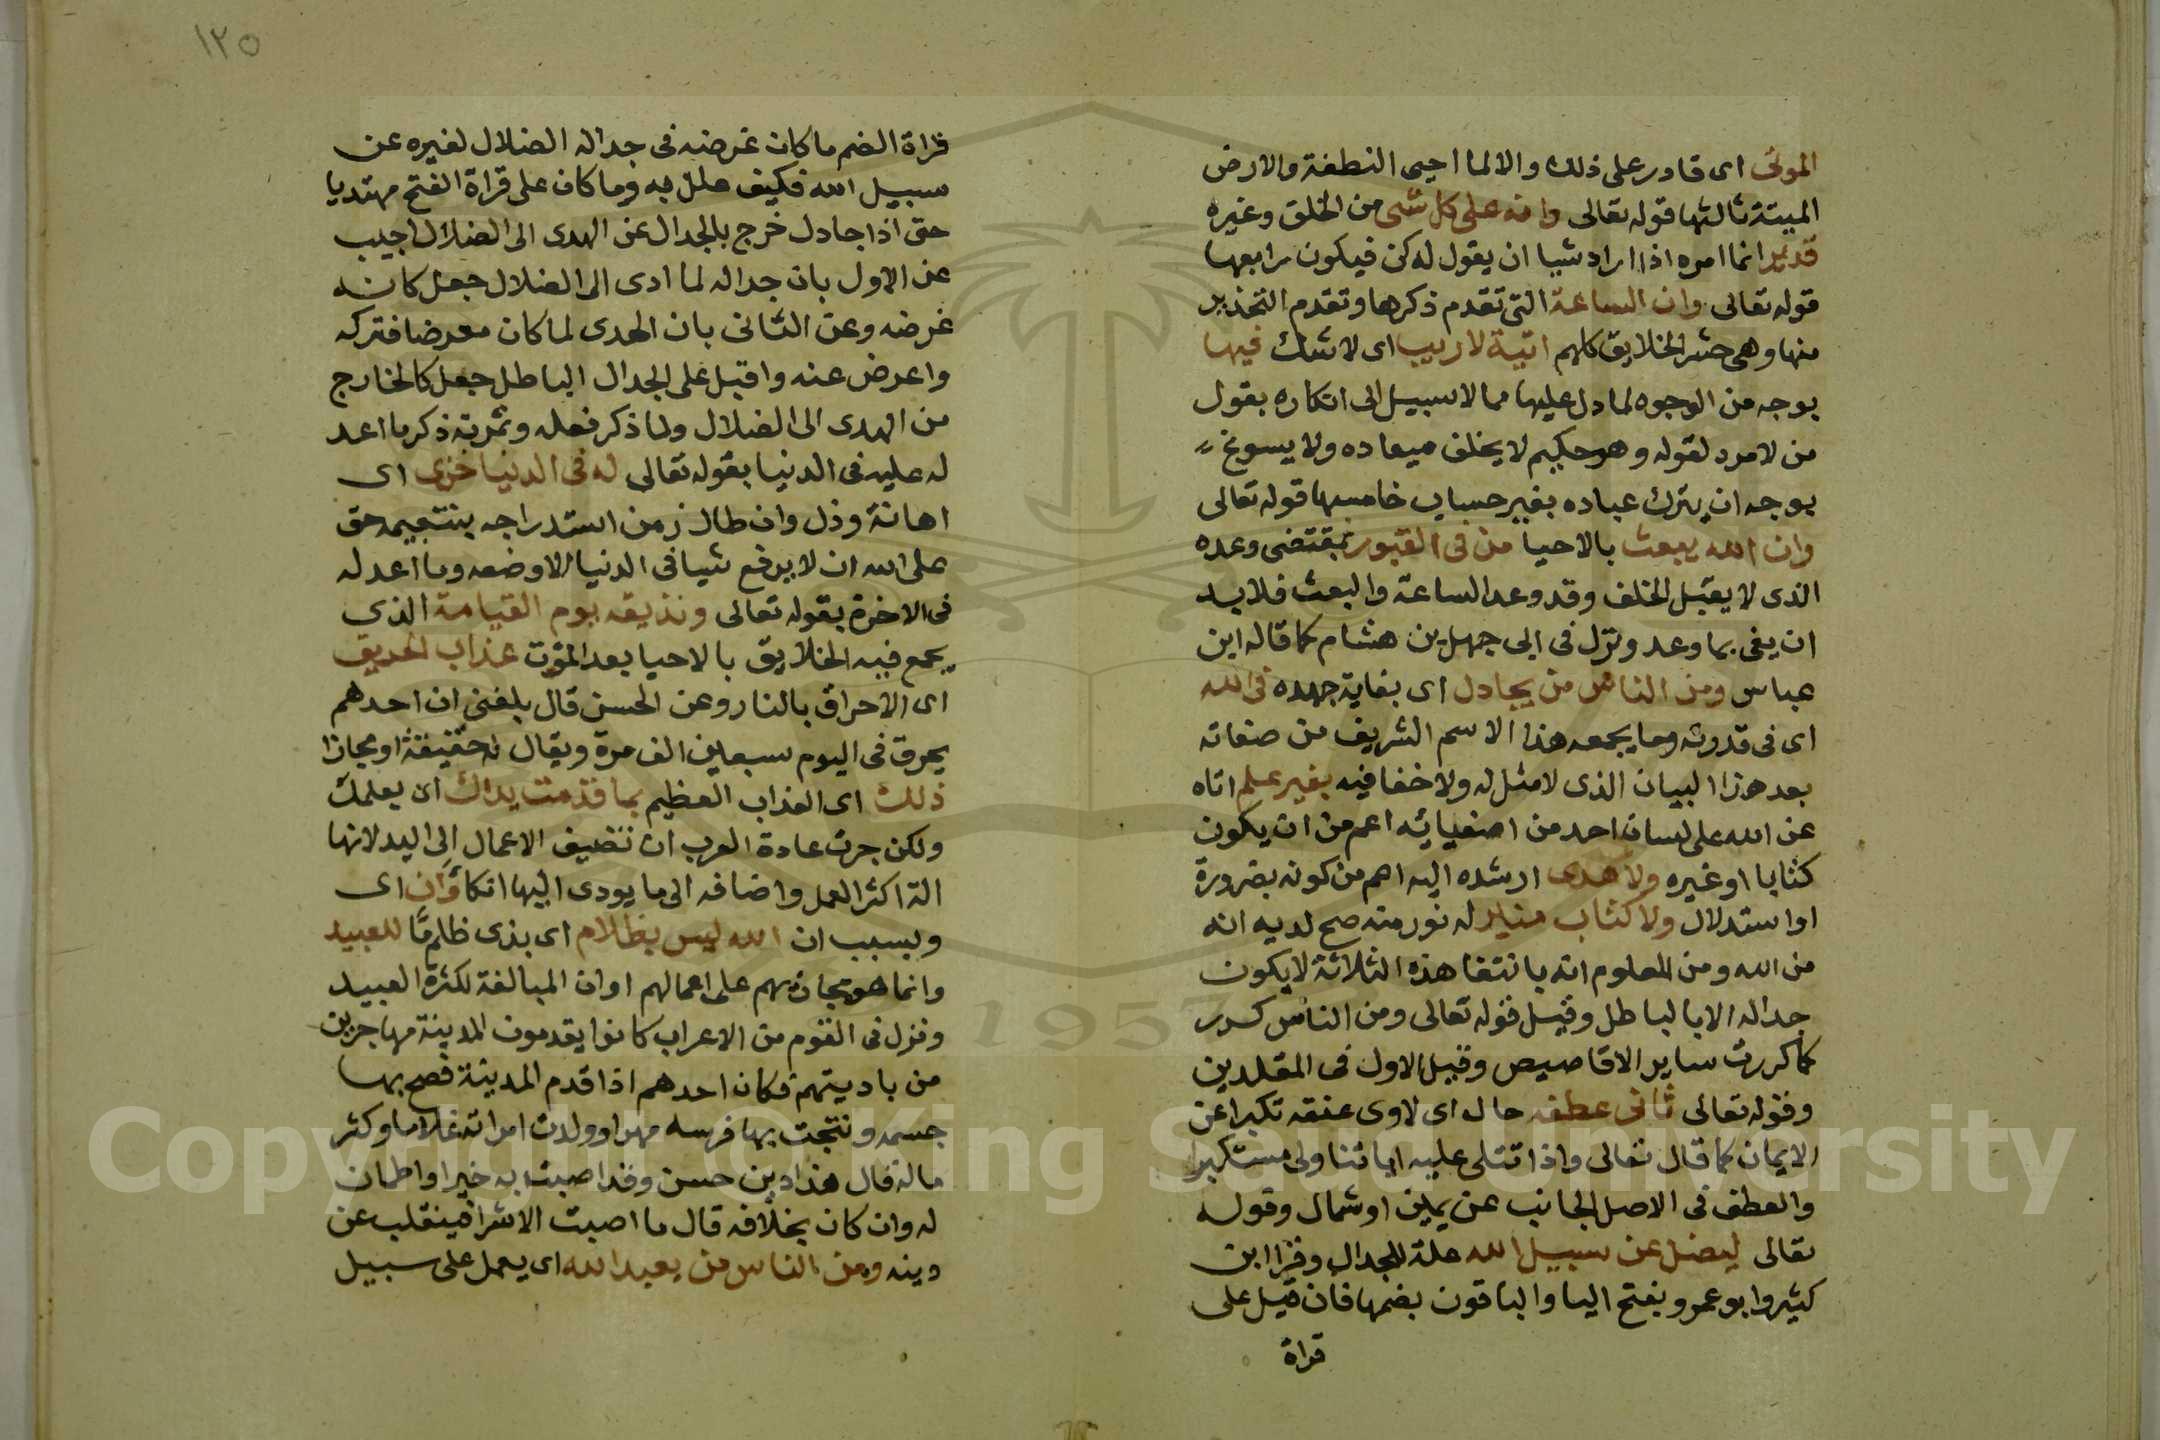 الموتى اى قادر على ذلك والا لما احيى النطفة والارض
الميتة ثالثها قوله تعالى وانه على كل شى من الخلق وغيره
قدير انما امره اذا اراد شيا ان يقول له كن فيكون رابعها
قوله تعالى وان الساعة التى تقدم ذكرها وتقدم التحذير
منها وهى حشر الخلايق كلهم اتية لا ريب اى لا شك فيها
بوجه من الوجوه لما دل عليها مما لا سبيل الى انكاره بقول
من لا مرد لقوله وهو حكيم لا يخلف ميعاده ولا يسوغ
بوجه ان يترك عباده بغير حساب خامسها قوله تعالى
وان الله يبعث بالاحيا من فى القبور بمقتضى وعده
الذى لا يقبل الخلف وقد وعد الساعة والبعث فلا بد
ان يفى بما وعد ونزل فى ابى جهل بن هشام كما قاله ابن
عباس ومن الناس من يجادل اى بغاية جهده فى الله
اى فى قدرته وما يجمعه هذا الاسم الشريف من صفاته
بعد هذا البيان الذى لا مثل له ولا خفا فيه بغير علم اتاه
عن الله على لسان احد من اصفيائه اعم من ان يكون
كتابا او غيره ولا هدى ارشده اليه اهم من كونه بضرورة
او استدلال ولا كتاب منير له نور منه صح لديه انه
من الله ومن المعلوم انه بانتفا هذه الثلاثة لا يكون
جداله الا بالباطل وقيل قوله تعالى ومن الناس كرر
كما كررت ساير الاقاصيص وقيل الاول فى المقلدين
وقوله تعالى ثانى عطفه حال اى لاوى عنقه تكبرا عن
الايمان كما قال تعالى واذا تتلى عليه اياتنا ولى مستكبرا
والعطف فى الاصل الجانب عن يمين او شمال وقوله
تعالى ليضل عن سبيل الله علة للجدال وقرا ابن
كثير وابو عمرو بفتح اليا والباقون بضمها فان قيل على
قراة
١٢٥
قراة الضم ما كان غرضه فى جداله الضلال لغيره عن
سبيل الله فكيف علل به وما كان على قراة الفتح مهتديا
حتى اذا جادل خرج بالجدال عن الهدى الى الضلال اجيب
عن الاول بان جداله لما ادى الى الضلال جعل كانه
غرضه وعن الثانى بان الهدى لما كان معرضا فتركه
واعرض عنه واقبل على الجدال الباطل جعل كالخارج
من الهدى الى الضلال ولما ذكر فعله وثمرته ذكر ما اعد
له عليه فى الدنيا بقوله تعالى له فى الدنيا خزى اى
اهانة وذل وان طال زمن استدراجه بتنعيمه حق
على الله ان لا يرفع شيا فى الدنيا الا وضعه وما اعد له
فى الاخرة بقوله تعالى ونذيقه يوم القيامة الذى
يجمع فيه الخلايق بالاحيا بعد الموت عذاب الحريق
اى الاحراق بالنار وعن الحسن قال بلغنى ان احدهم
يحرق فى اليوم سبعين الف مرة ويقال له حقيقة او مجازا
ذلك اى العذاب العظيم بما قدمت يداك اى بعلمك
ولكن جرت عادة العرب ان تضيف الاعمال الى اليد لانها
الة اكثر العمل واضافه الى ما يودى اليها انكا وان اى
وبسبب ان الله ليس بظلام اى بذى ظلم ما للعبيد
وانما هو مجازيهم على اعمالهم او ان المبالغة لكثرة العبيد
ونزل فى القوم من الاعراب كانوا يقدمون المدينة مهاجرين
من باديتهم فكان احدهم اذا قدم المدينة فصح بها
جسمه ونتجت بها فرسه مهرا وولدت امراته غلاما وكثر
ماله قال هذا دين حسن وقد اصبت به خيرا واطمان
له وان كان بخلافه قال ما اصبت الا شرا فينقلب عن
دينه ومن الناس من يعبد الله اى يعمل على سبيل
1957
Copyright © King Saud University